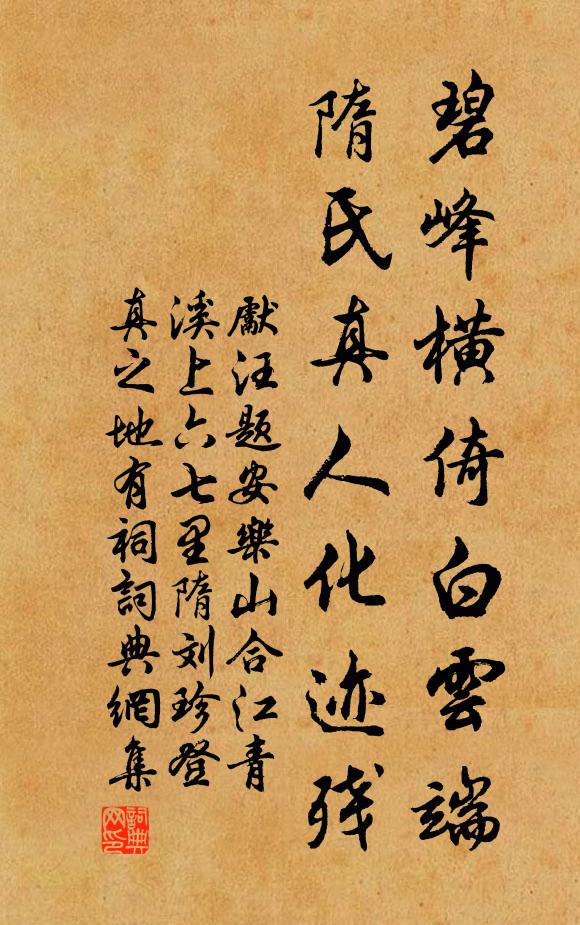 碧峰橫倚白雲端
隋氏真人化迹残
獻汪题安樂山合江青
溪上六七里隋刘珍登
真之地有祠詞典網集
詞典
网印